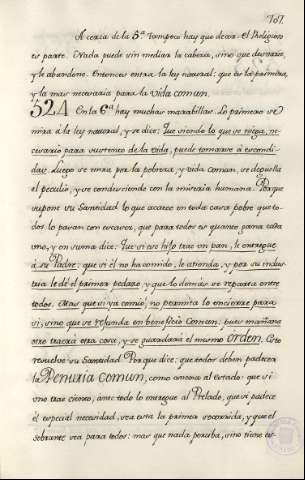 707.
A cerca de la 5ª tampoco hay que decir. El Religioso
es parte. Nada puede sin mediar la cabeza, sino que desvaríe,
y le abandone. Entonces entra la ley natural: que es la primera,
y la mas necesaria para la vida comun.
524 En la 6ª hay muchas maravillas. Lo primero se
mira á la ley natural, y se dice: Que siendo lo que se niega, ne-
cesario para sustento de la vida, puede tomarse á escondi-
das. Luego se mira por la pobreza, y vida comun, se degüella
el peculio, y se condesciende con la miseria humana. Porque
supone su Santidad lo que acaece en toda casa pobre que to-
dos lo pasan con escasez, que para todos es quanto gana cada
uno, y en suma dice: Que si un hijo trae un pan, le entregue
á su Padre: que si él no ha comido, le atienda, y por su indus-
tria le dé el primer pedazo, y que lo demas se reparta entre
todos. Mas que si ya comió, no permita lo encierre para
si, sino que se refunda en beneficio Comun: pues mañana
otro traera otra cosa, y se guardará el mismo orden. Esto
resuelve su Santidad Por que dice: que todos deben padecer
la Penuria comun, como anexa al estado: que si
uno trae ciento, ante todo lo entregue al Prelado, que si padece
él especial necesidad, sea esta la primera socorrida, y que el
sobrante sea para todos: mas que nada perciba, sino tiene es-